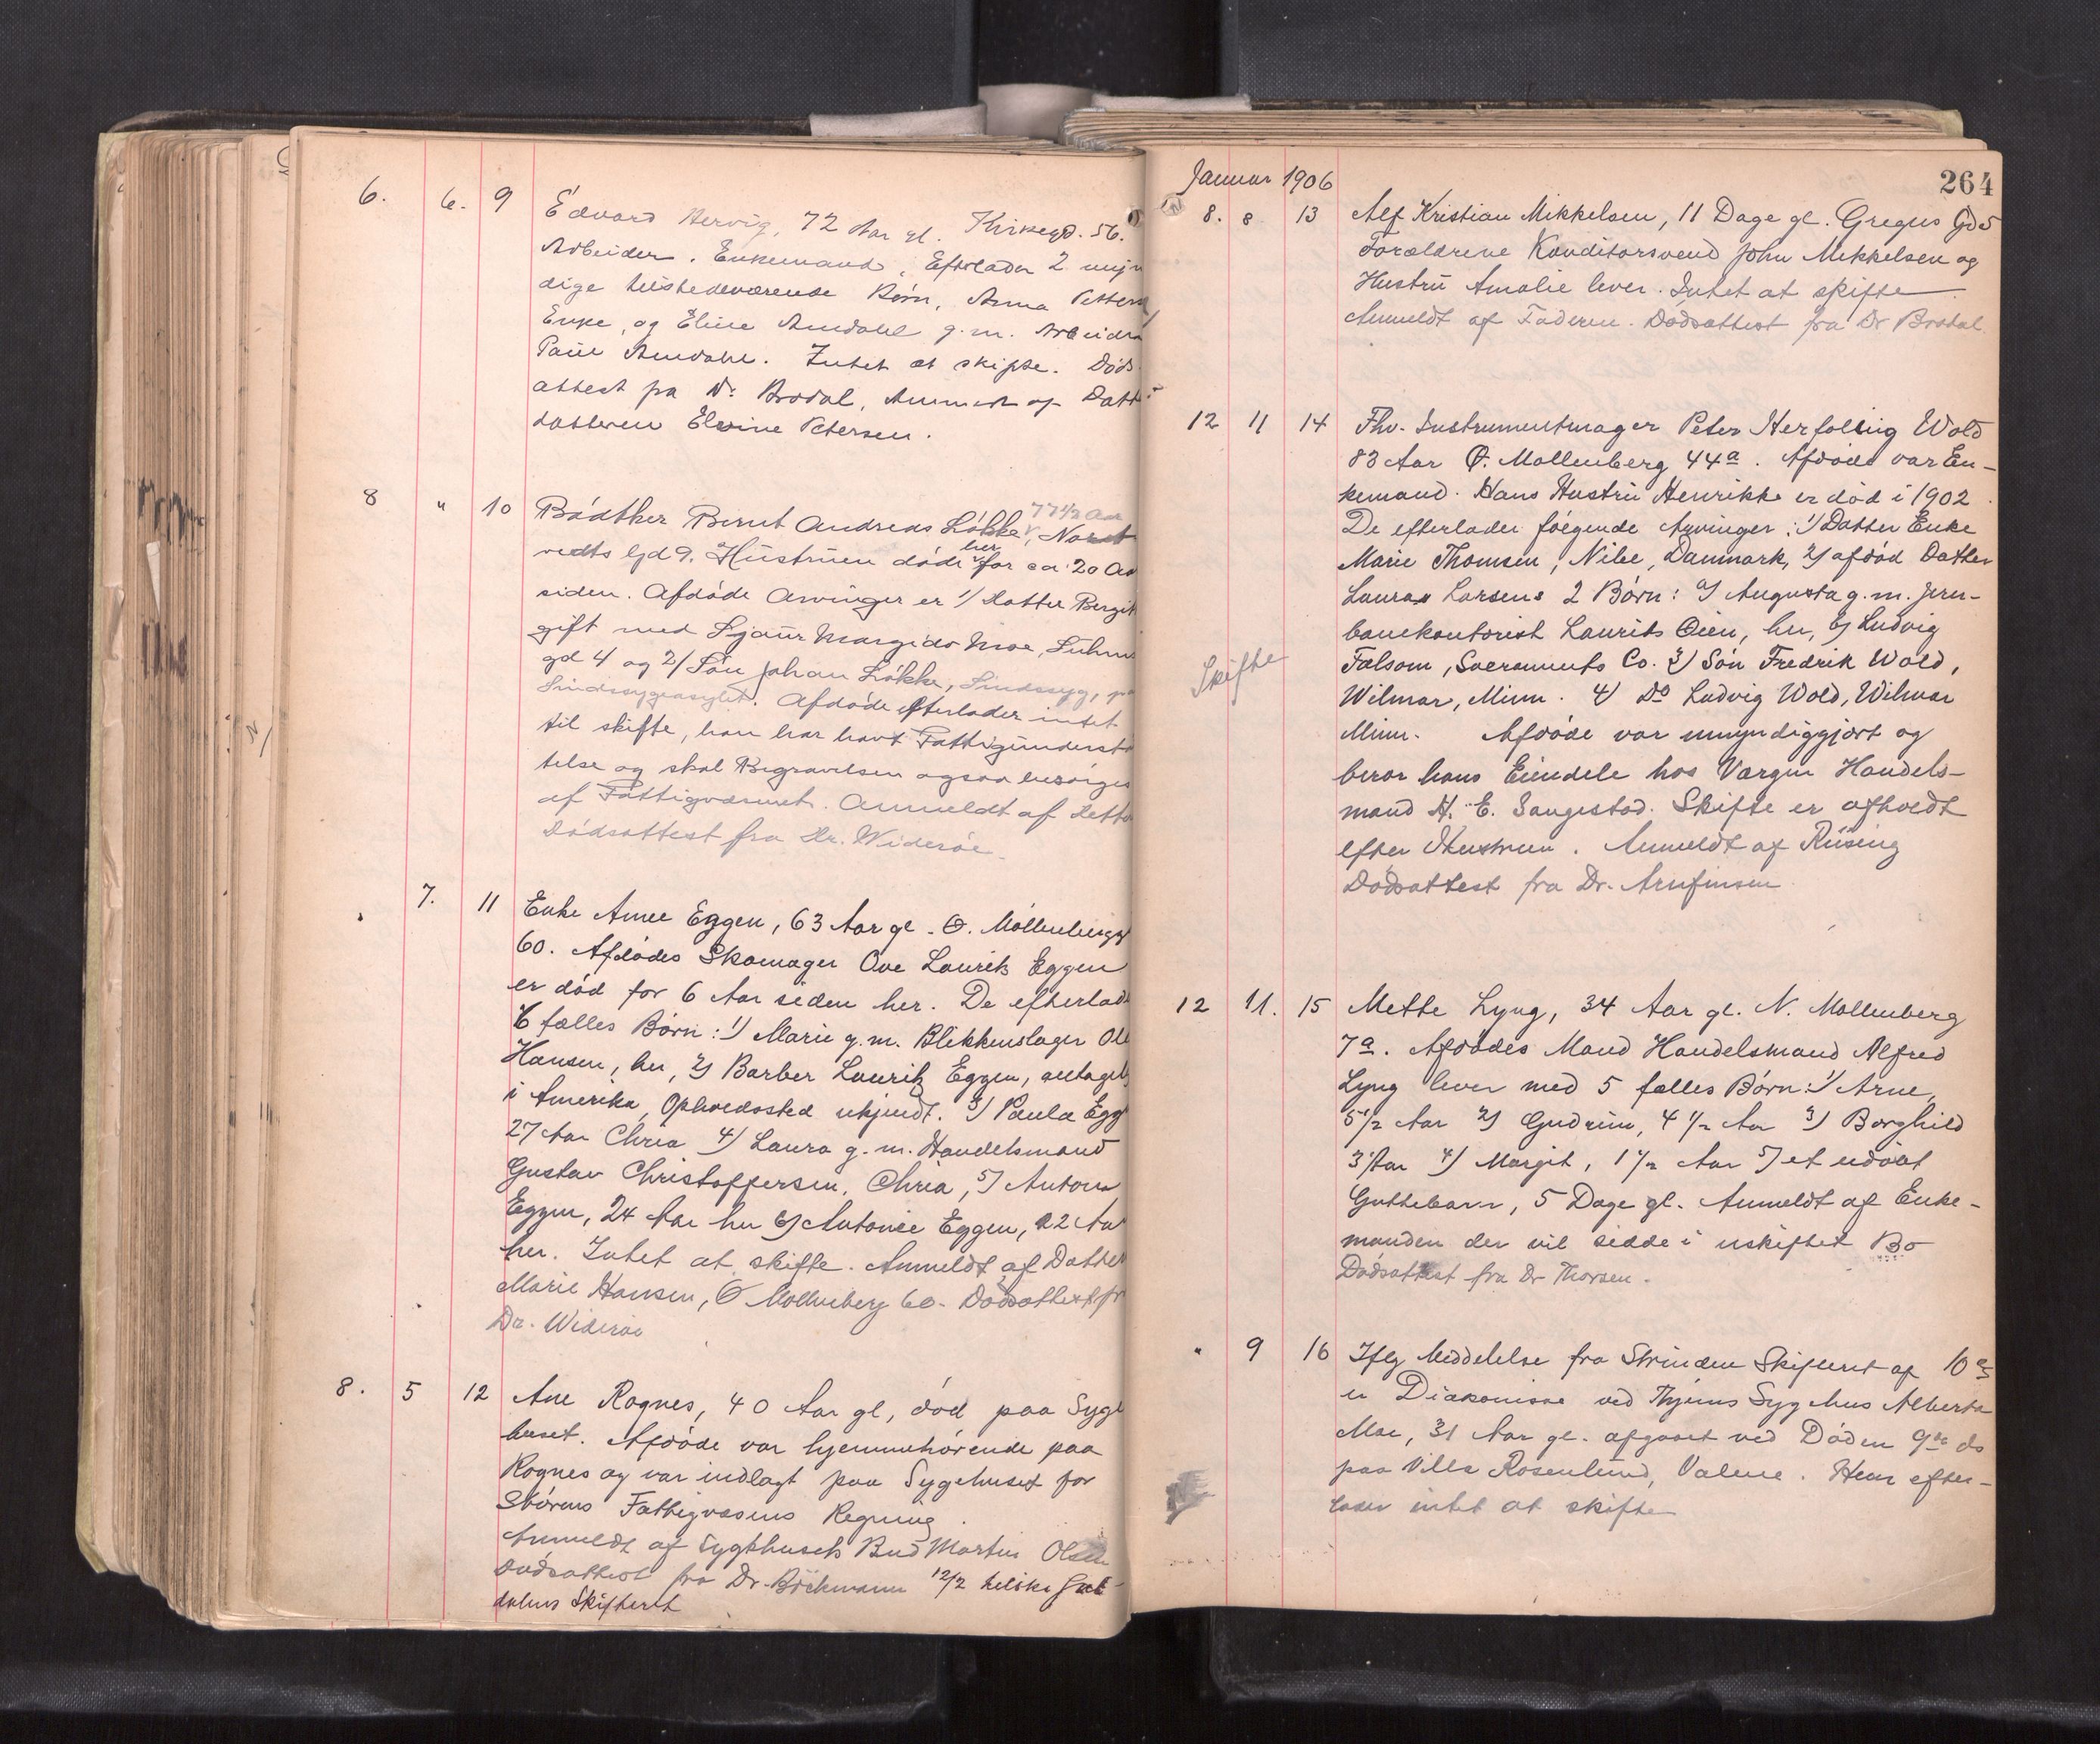 6. 6. 9 Edvard Hervig, 72 Aar gl. Kirkegd. 56.
Arbeider. Enkemand. Efterlader 2 myn
dige tilstedeværende Børn, Anna Petters
Enke, og Eline Amdahl g.m. Arbeider
Paul Amdahl. Intet at skifte. Døds
attest fra Dr. Brodal, Anmeldt af Datter
datteren Elvine Petersen.
8 " 10 Bødtker Bernt Andreas Løkke, 77 1/2 Aar
vedts gd 9. Hustruen døde her for ca. 20 Aar
siden. Afdøde Arvinger er 1/ Datter Bergit
gift med Sjauer Margido Moe, Suhms
gd 4 og 2/ Søn Johan Løkke, Sindssyg, på
Sindssygeasylet. Afdøde efterlader intet
til skifte, han har havt Fattigunderstø
telse og skal Begravelsen ogsaa besørges
af Fattigvæsenet. Anmeldt af Datter
Dødsattest fra Dr. Widerøe.
7. 11 Enke Anne Eggen, 63 Aar gl. O. Møllenberggt
60. Afdødes Skomager Ove Lauritz Eggen
er død for 6 Aar siden her. De efterlader
6 fælles Børn: 1) Marie g.m. Blikkenslager Ole
Hansen, her, 2) Barber Lauritz Eggen, antagelig
i Amerika, Opholdssted ukjendt. 3) Paula Egg
27 Aar Chria 4) Laura g.m. Handelsmand
Gustav Christoffersen, Chria, 5) Anton
Eggen, 24 Aar her 6) Antonie Eggen, 22 Aar
her. Intet at skifte. Anmeldt af Datter
Marie Hansen, Ø Møllenberg 60. Dødsattest fr
Dr. Widerøe
8. 5 12 Ane Rognes, 40 Aar gl, død paa Syge
huset. Afdøde var hjemmehørende paa
Rognes og var indlagt paa Sygehuset for
Størens Fattigvæsens Regning.
Anmeldt af Sygehusets Bud Martin Olsen
Dødsattest fra Dr. Bøckmann 12/2 tilskr. Gul-
dalens Skifteret
Januar 1906 264
8. 8 13 Alf Kristian Mikkelsen, 11 Dage gl. Gregus Gd 5
Forældrene Konditorsvend John Mikkelsen og
Hustru Amalie lever. Intet at skifte.
Anmeldt af Faderen. Dødsattest fra Dr Brodal.
12 11 14 Fhv. Instrumentmager Peter Herfolling Wold
83 Aar Ø. Møllenberg 44a. Afdøde var En-
kemand. Hans Hustru Henrikke er død i 1902.
De efterlader følgende Arvinger: 1) Datter Enke
Marie Thomsen, Nibe, Danmark, 2) afdød Datter
Lauras Larsens 2 Børn: a) Augusta g.m. Jern-
banekontorist Laurits Øien, her, b) Ludvig
Folsom, Sacramento Co. 3) Søn Fredrik Wold,
Skifte
Wilmar, Minn. 4) Do Ludvig Wold, Wilmar
Minn. Afdøde var umyndiggjort og
beror hans Eiendele hos Værgen Handels-
mand H. E. Saugestad. Skifte er afholdt
efter Hustruen. Anmeldt af Riising
Dødsattest fra Dr. Arnfinsen
12 11. 15 Mette Lyng, 34 Aar gl. N. Møllenberg
7a. Afdødes Mand Handelsmand Alfred
Lyng lever med 5 fælles Børn: 1) Arne,
5 1/2 Aar 2) Gudrun, 4 1/2 Aar 3) Borghild
3 Aar 4) Margit, 1 1/2 Aar 5) et udøbt
Guttebarn, 5 Dage gl. Anmeldt af Enke-
manden der vil sidde i uskiftet Bo
Dødsattest fra Dr Thorsen.
" 9 16 Iflg Meddelelse fra Strinden Skifteret af 10 ds
er Diakonisse ved Thjems Sygehus Alberta
Moe, 31 Aar gl. afgaaet ved Døden 9de ds
paa Villa Rosenlund, Valene. Hun efter-
lader intet at skifte